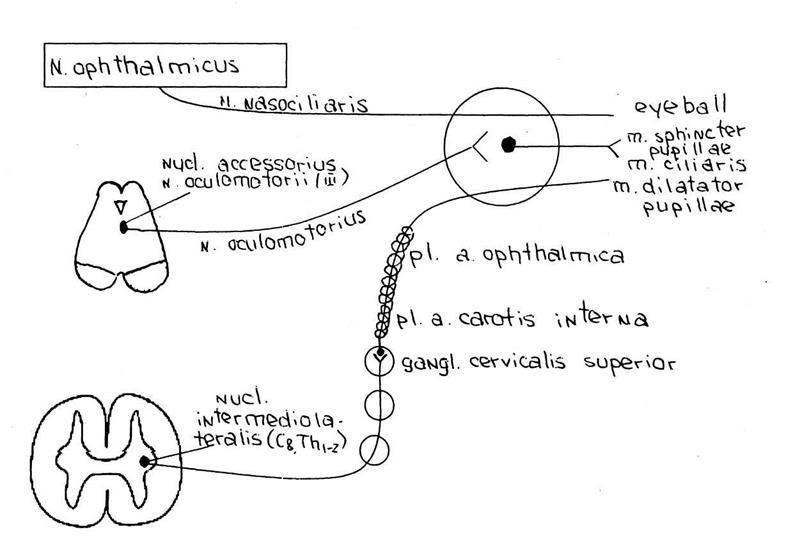 N. ophthalmicus
N. Nasociliaris
eyeball
m. sphincter
pupillae
m. ciliaris
m. dilatator
pupillae
Nucl. accessorius
N. oculomotorii (III)
N. oculomotorius
pl. a. ophthalmica
pl. a. carotis interna
gangl. cervicalis superior
Nucl.
intermediola-
teralis (C8, Th1-2)